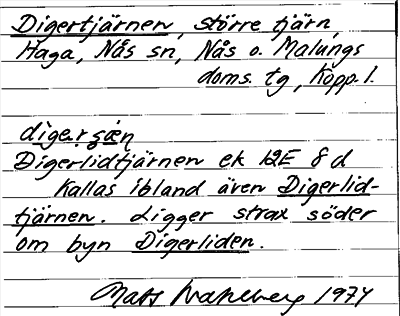 Digertjärnen, större tjärn,
Haga, Nås sn, Nås o. Malungs
doms. tg, Kopp. l.
Digerlidtjärnen ek 12E 8d
Kallas ibland även Digerlid-
tjärnen. Ligger strax söder
om byn Digerliden.
Mats Wahlberg 1974